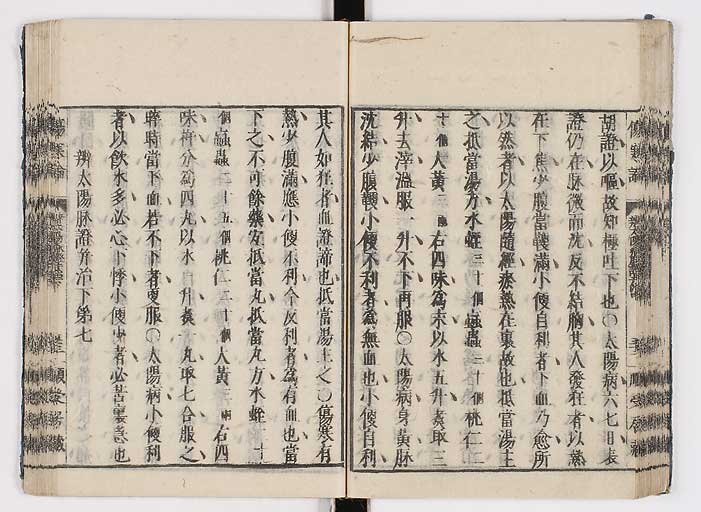 胡證以嘔故知極吐下也〇太陽病六七日表
證仍在脉微而沈反不結胸其人發狂者以熱
在下焦少腹當鞕滿小便自利者下血乃愈所
以然者以太陽隨經瘀熱在裏故也抵當湯主
之抵當湯方水蛭三十個蝱蟲三十個桃仁二
十個大黃三兩右四味爲末以水五升煮取三
升去滓溫服一升不下再服〇太陽病身黃脉
沈結少腹鞕小便不利者爲無血也小便自利
其人如狂者血證諦也抵當湯主之〇傷寒有
熱少腹滿應小便不利今反利者爲有血也當
下之不可餘藥宜抵當丸抵當丸方水蛭二十
個蝱蟲二十五個桃仁二十個大黃三兩右四
味杵分爲四丸以水一升煮一丸取七合服之
晬時當下血若不下者更服〇太陽病小便利
者以飲水多必心下悸小便少者必苦裏急也
辨太陽脉證并治下第七
傷寒論